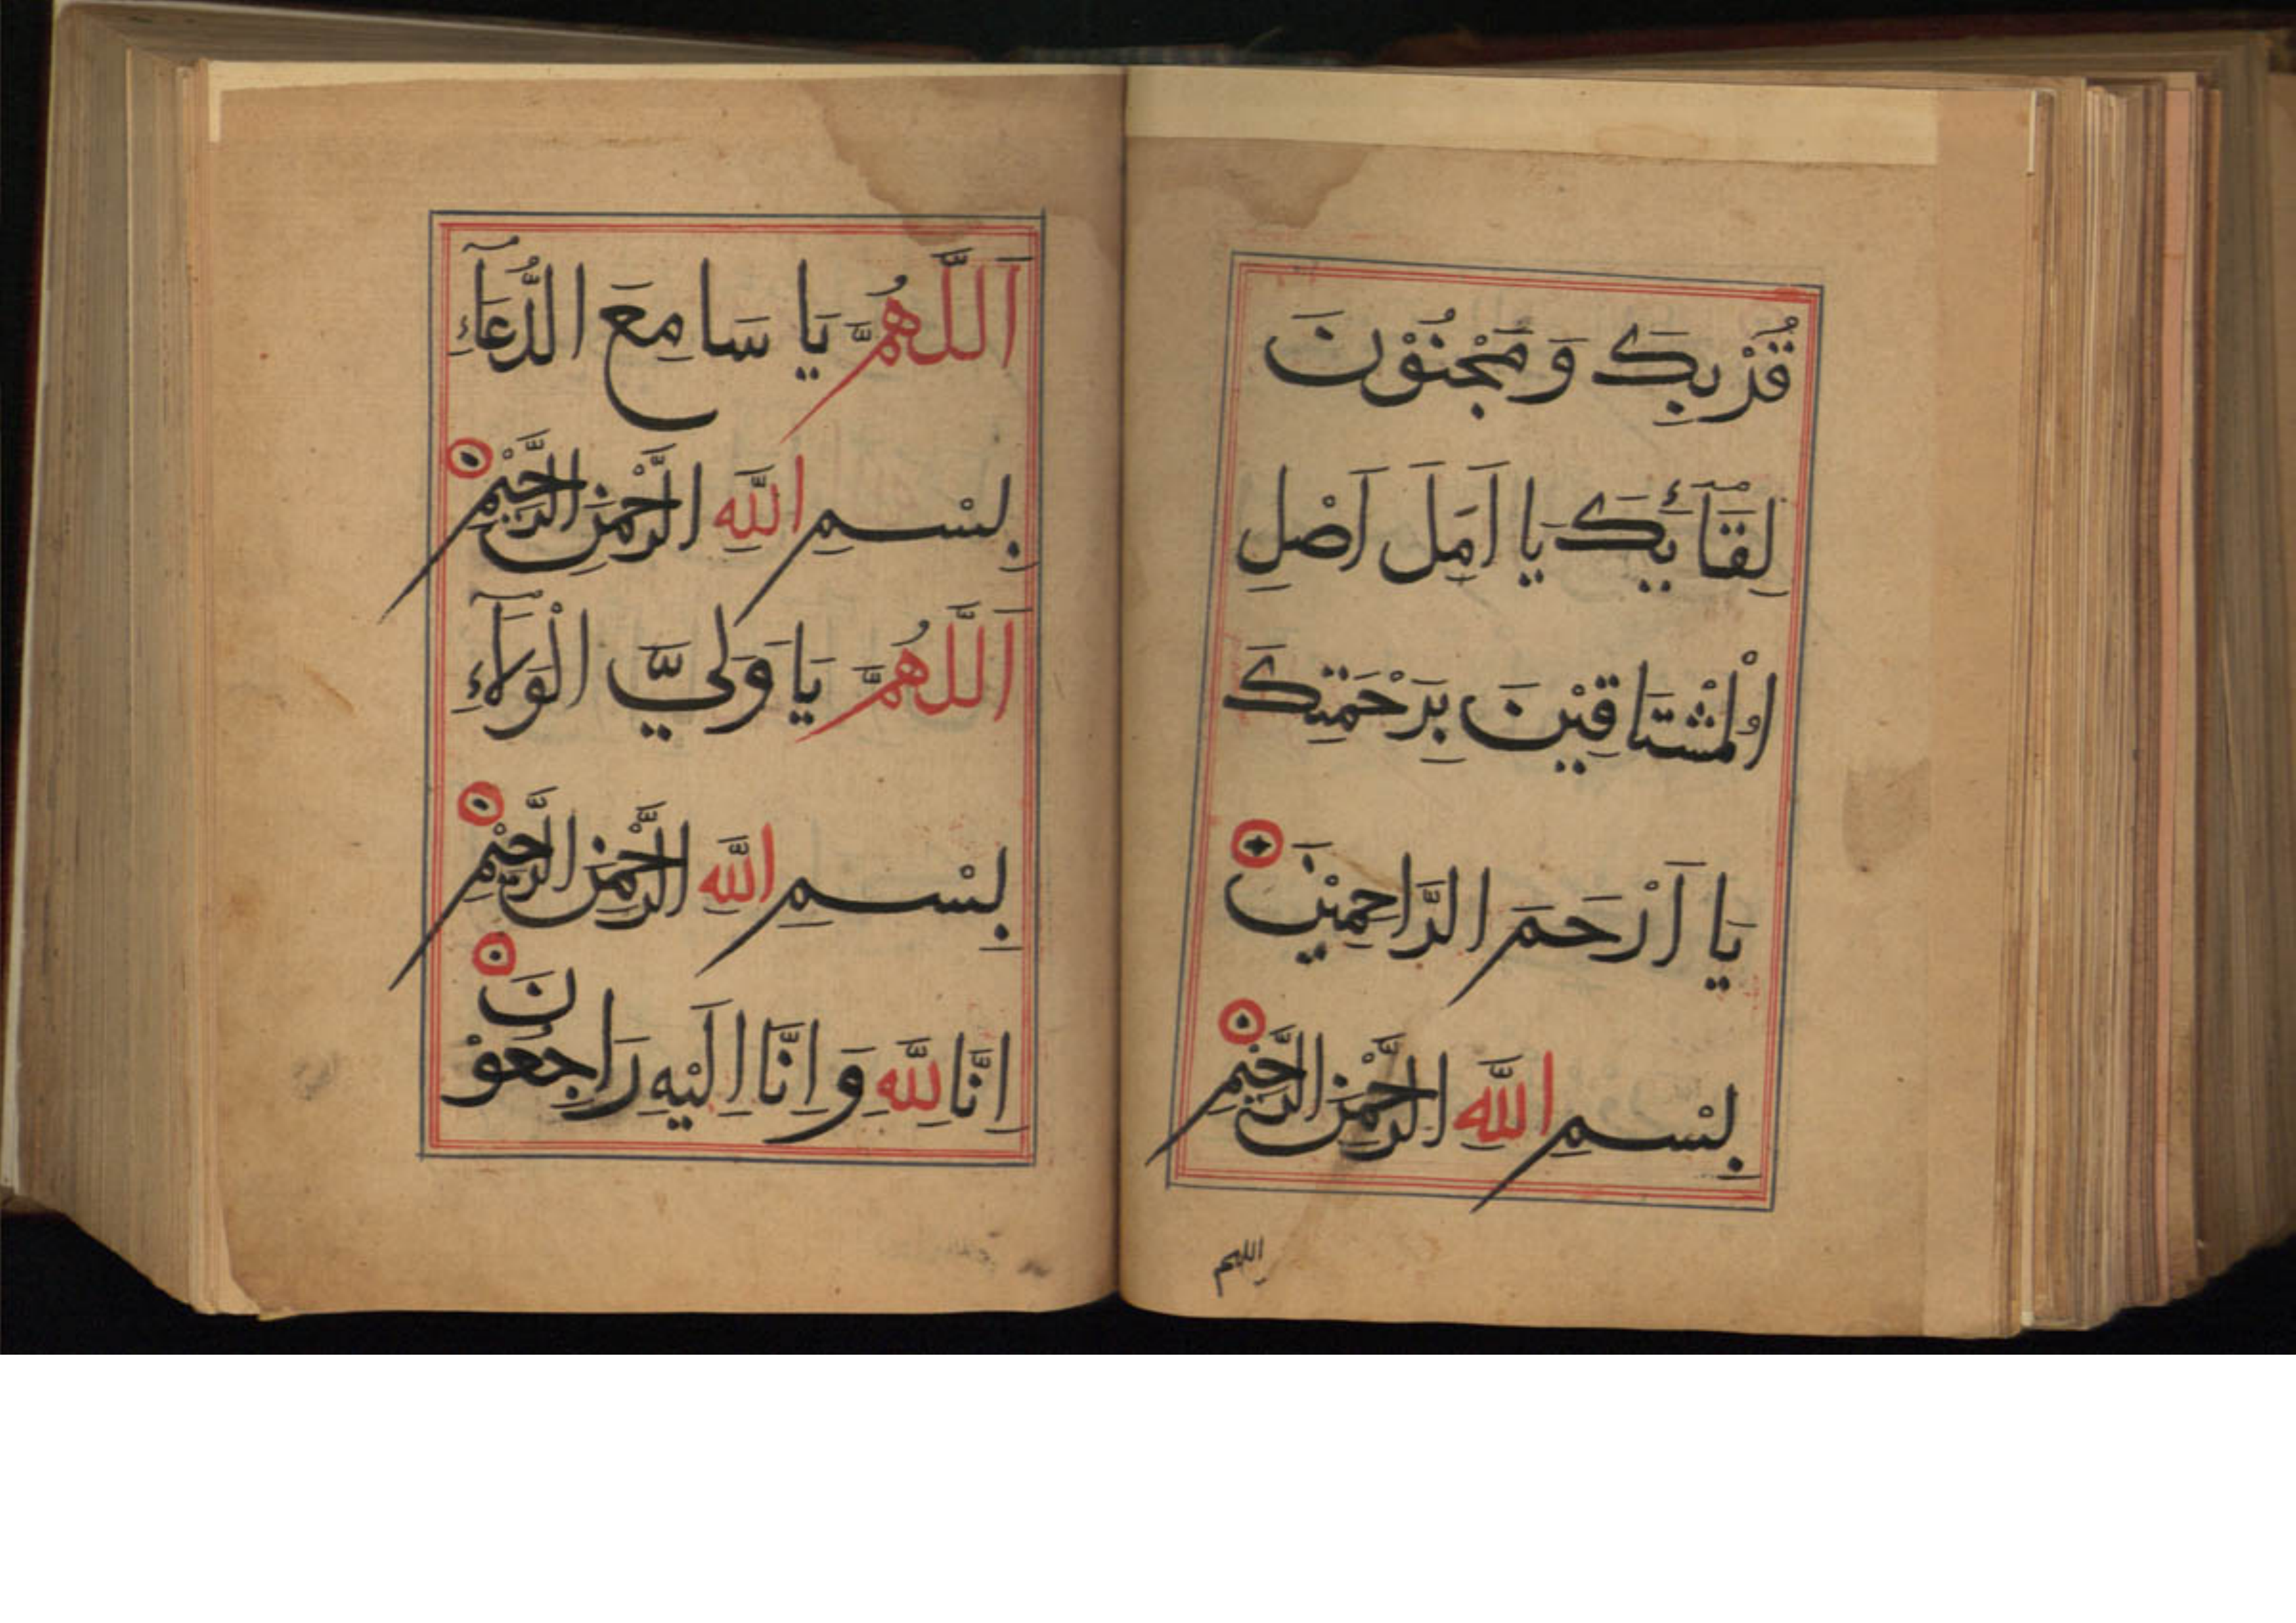 قُرْبِكَ وَ مَجْنُوْنَ
لِقَآئِكَ يَا اَمَلَ اَصْلِ
الْمُشْتَاقِيْنَ بِرَحْمَتِكَ
يَا اَرْحَمَ الرَّاحِمِيْنَ
بِسْمِ اللَّهِ الرَّحْمٰنِ الرَّحِيْمِ
اللهم
اَللَّهُمَّ يَا سَامِعَ الدُّعَآءِ
بِسْمِ اللَّهِ الرَّحْمٰنِ الرَّحِيْمِ
اَللَّهُمَّ يَا وَلِيَّ الْوَلَآءِ
بِسْمِ اللَّهِ الرَّحْمٰنِ الرَّحِيْمِ
اِنَّا لِلَّهِ وَ اِنَّا اِلَيْهِ رَاجِعُوْنَ